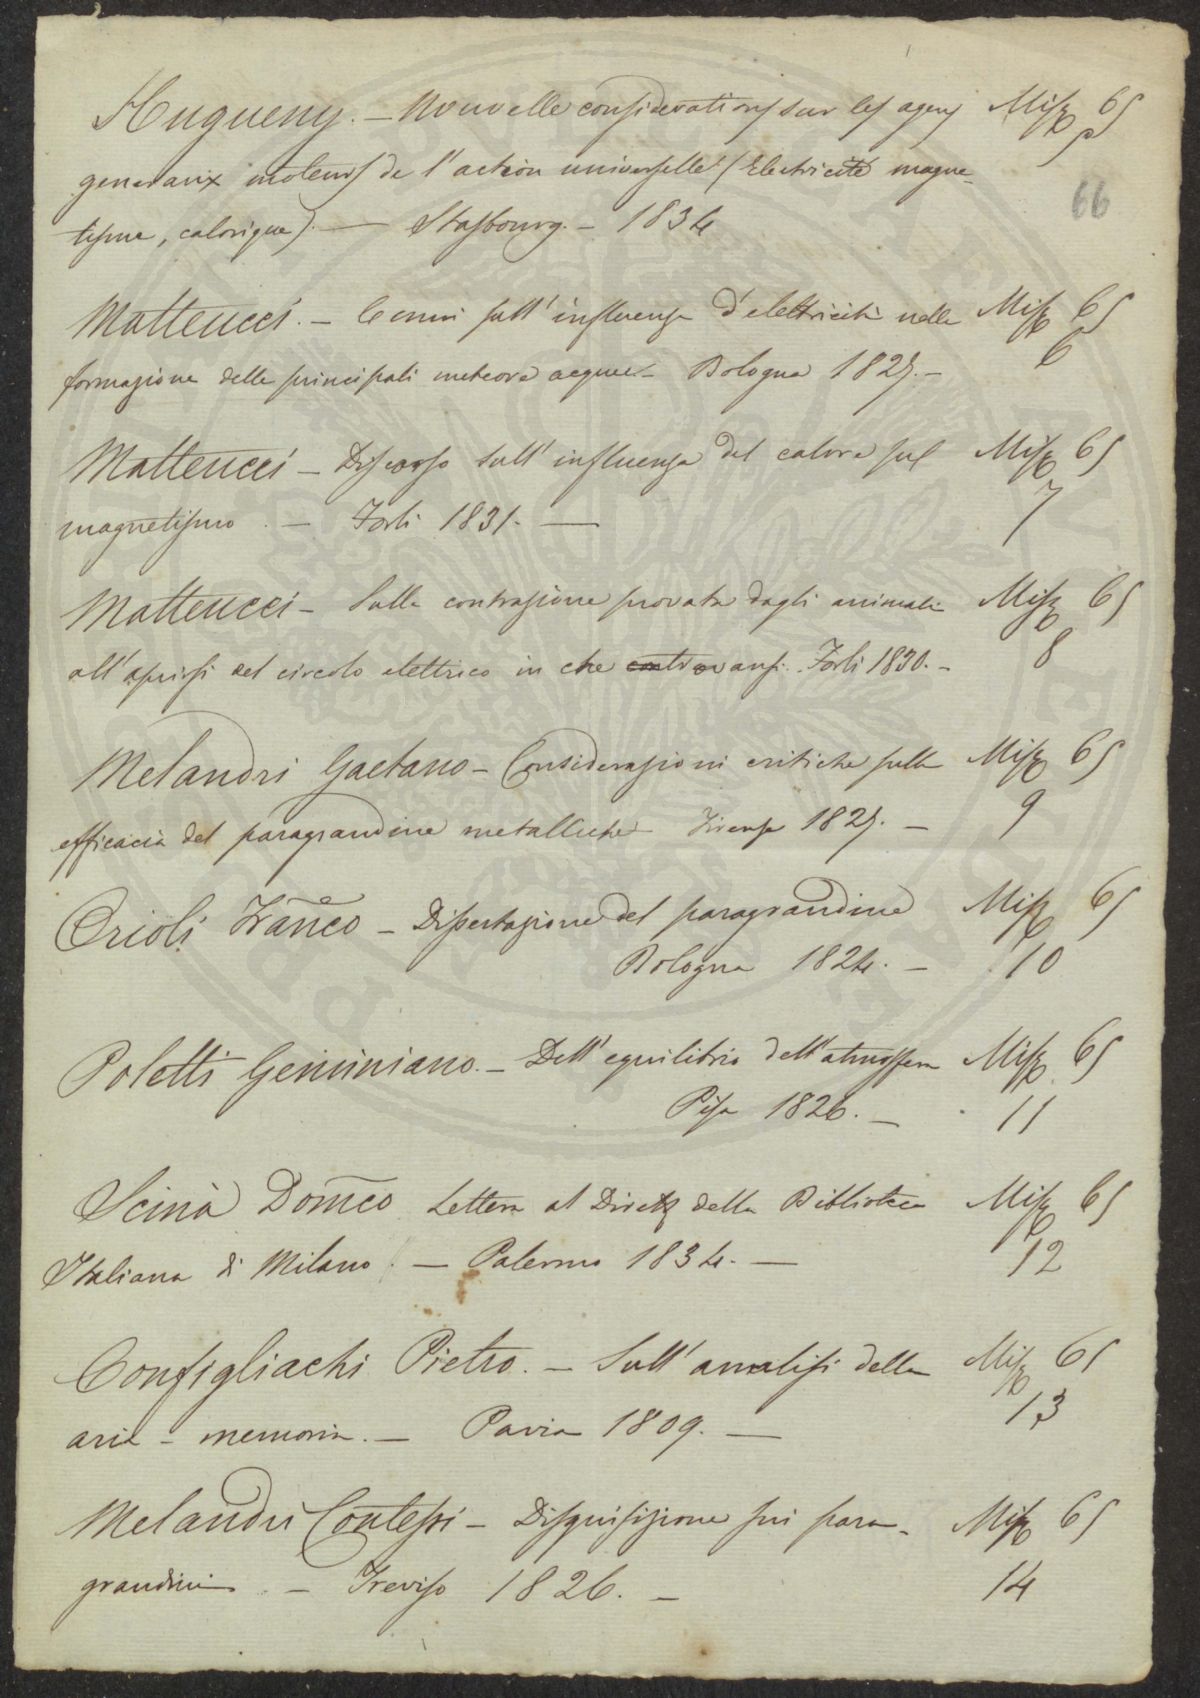 Hugueny. – Nouvelle considerations sur les agens Misc 65
5
generaux moteurs de l'action universelle (Electricité magne-
66
tisme, calorique). — Stasbourg. – 1834
Matteucci. – Cenni sull'influenza d'elettricità nella Misc 65
6
formazione delle principali meteore acquee – Bologna 1825. –
Matteucci – Discorso sull'influenza del calore sul Misc 65
7
magnetismo. – Forli 1831. —
Matteucci – Sulla contrazione provata dagli animali Misc 65
8
all'aprirsi del circolo elettrico in che trovansi. Forli 1830. –
Melandri Gaetano – Considerazioni critiche sulla Misc 65
9
efficacia del paragrandine metalliche – Firenze 1825. –
Orioli Franco – Dissertazione del paragrandine Misc 65
Bologna 1824. – 10
Poletti Geminiano. – Dell'equilibrio dell'atmosfera Misc 65
Pisa 1826. – 11
Scinà Domco Lettera al Dirett della Biblioteca Misc 65
Italiana di Milano. – Palermo 1834. — 12
Configliachi Pietro. – Sull'analisi della Misc 65
13
aria – memoria. – Pavia 1809. —
Melandri Contessi – Disquisizione sui para- Misc 65
grandini. – Treviso 1826. – 14